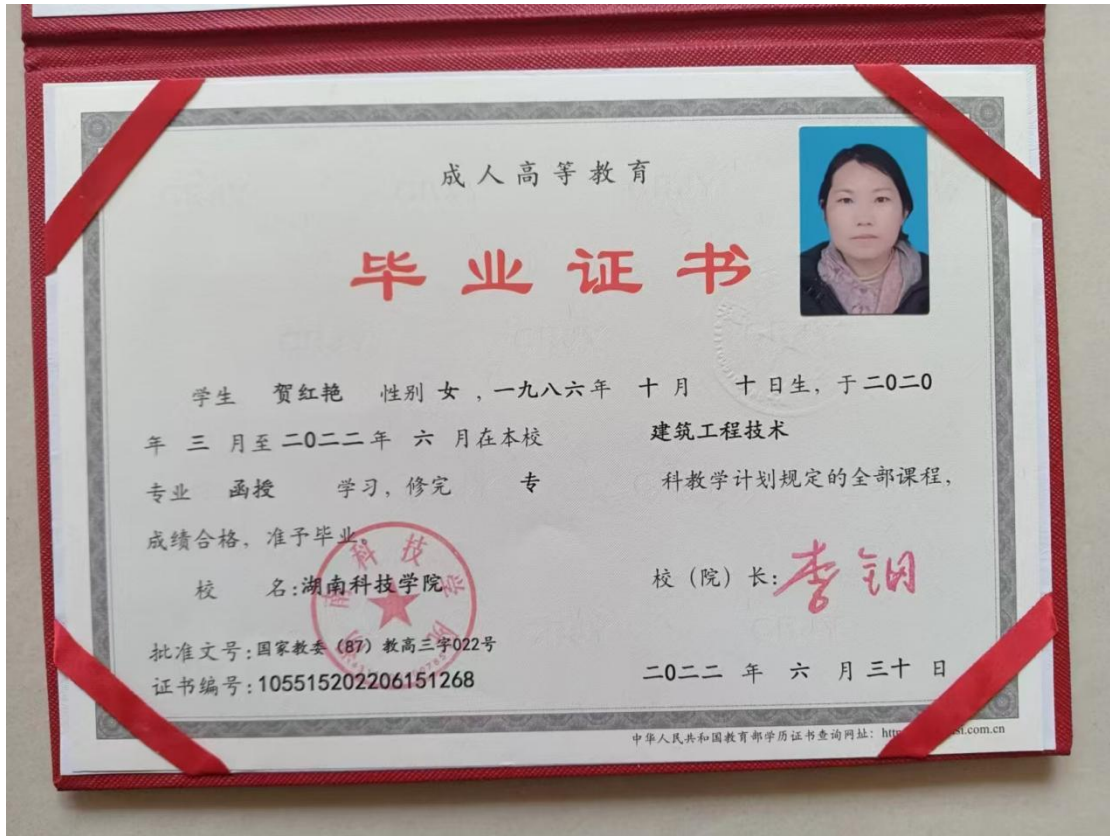 成人高等教育
毕业证书
学生 贺红艳 性别 女 ，一九八六年 十 月 十 日生，于二0二0
年 三 月至二0二二年 六 月在本校 建筑工程技术
专业 函授 学习，修完 专 科教学计划规定的全部课程，
成绩合格，准予毕业。
校 名:湖南科技学院
校（院）长: 李钢
批准文号:国家教委（87）教高三字022号
证书编号:105515202206151268
二0二二 年 六 月 三十 日
中华人民共和国教育部学历证书查询网址：